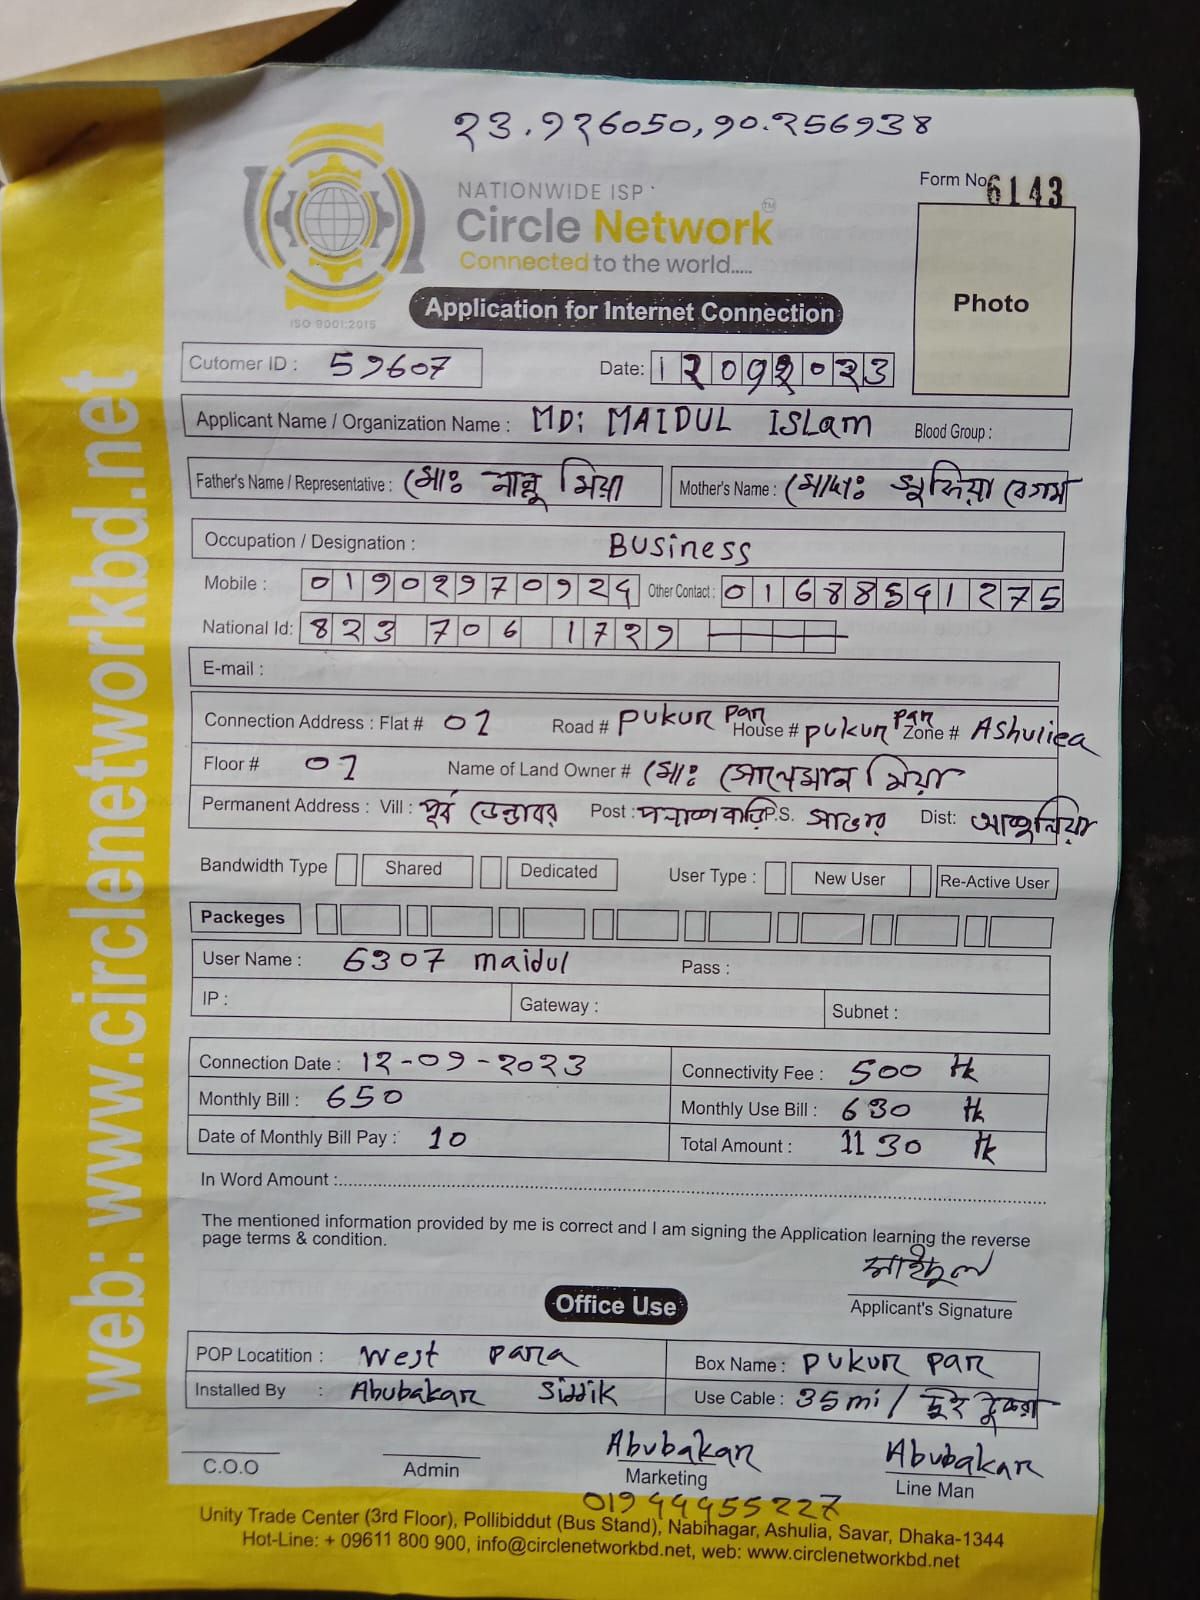 23.926050,90.256938
NATIONWIDE ISP
Circle Network TM
Connected to the world.....
ISO 9001:2015
Form No 6143
Photo
Application for Internet Connection
Cutomer ID : 59607 Date: 12092023
Applicant Name / Organization Name : MD: MAIDUL ISLam Blood Group :
Father's Name / Representative : মোঃ মান্নু মিয়া Mother's Name : মোছাঃ সুফিয়া বেগম
Occupation / Designation : Business
Mobile : 01902970924 Other Contact : 01688541275
National Id: 823 706 1729
E-mail :
Connection Address : Flat # 01 Road # Pukur Par House # pukur Par Zone # Ashuliea
Floor # 01 Name of Land Owner # মোঃ সোলেমান মিয়া
Permanent Address : Vill : পূর্ব ডেন্ডাবর Post : পলাশবাড়ি P.S. সাভার Dist: আশুলিয়া
Bandwidth Type Shared Dedicated User Type : New User Re-Active User
Packeges
User Name : 6307 maidul Pass :
IP : Gateway : Subnet :
Connection Date : 12-09-2023 Connectivity Fee : 500 tk
Monthly Bill : 650 Monthly Use Bill : 630 tk
Date of Monthly Bill Pay : 10 Total Amount : 1130 tk
In Word Amount :
The mentioned information provided by me is correct and I am signing the Application learning the reverse
page terms & condition.
মাইদুল
Applicant's Signature
Office Use
POP Locatition : West para Box Name : PUKUR PAR
Installed By : Abubakar Siddik Use Cable : 35mi / দুই টুকরা
Abubakar Abubakar
C.O.O Admin Marketing Line Man
01944455227
Unity Trade Center (3rd Floor), Pollibiddut (Bus Stand), Nabinagar, Ashulia, Savar, Dhaka-1344
Hot-Line: + 09611 800 900, info@circlenetworkbd.net, web: www.circlenetworkbd.net
web: www.circlenetworkbd.net